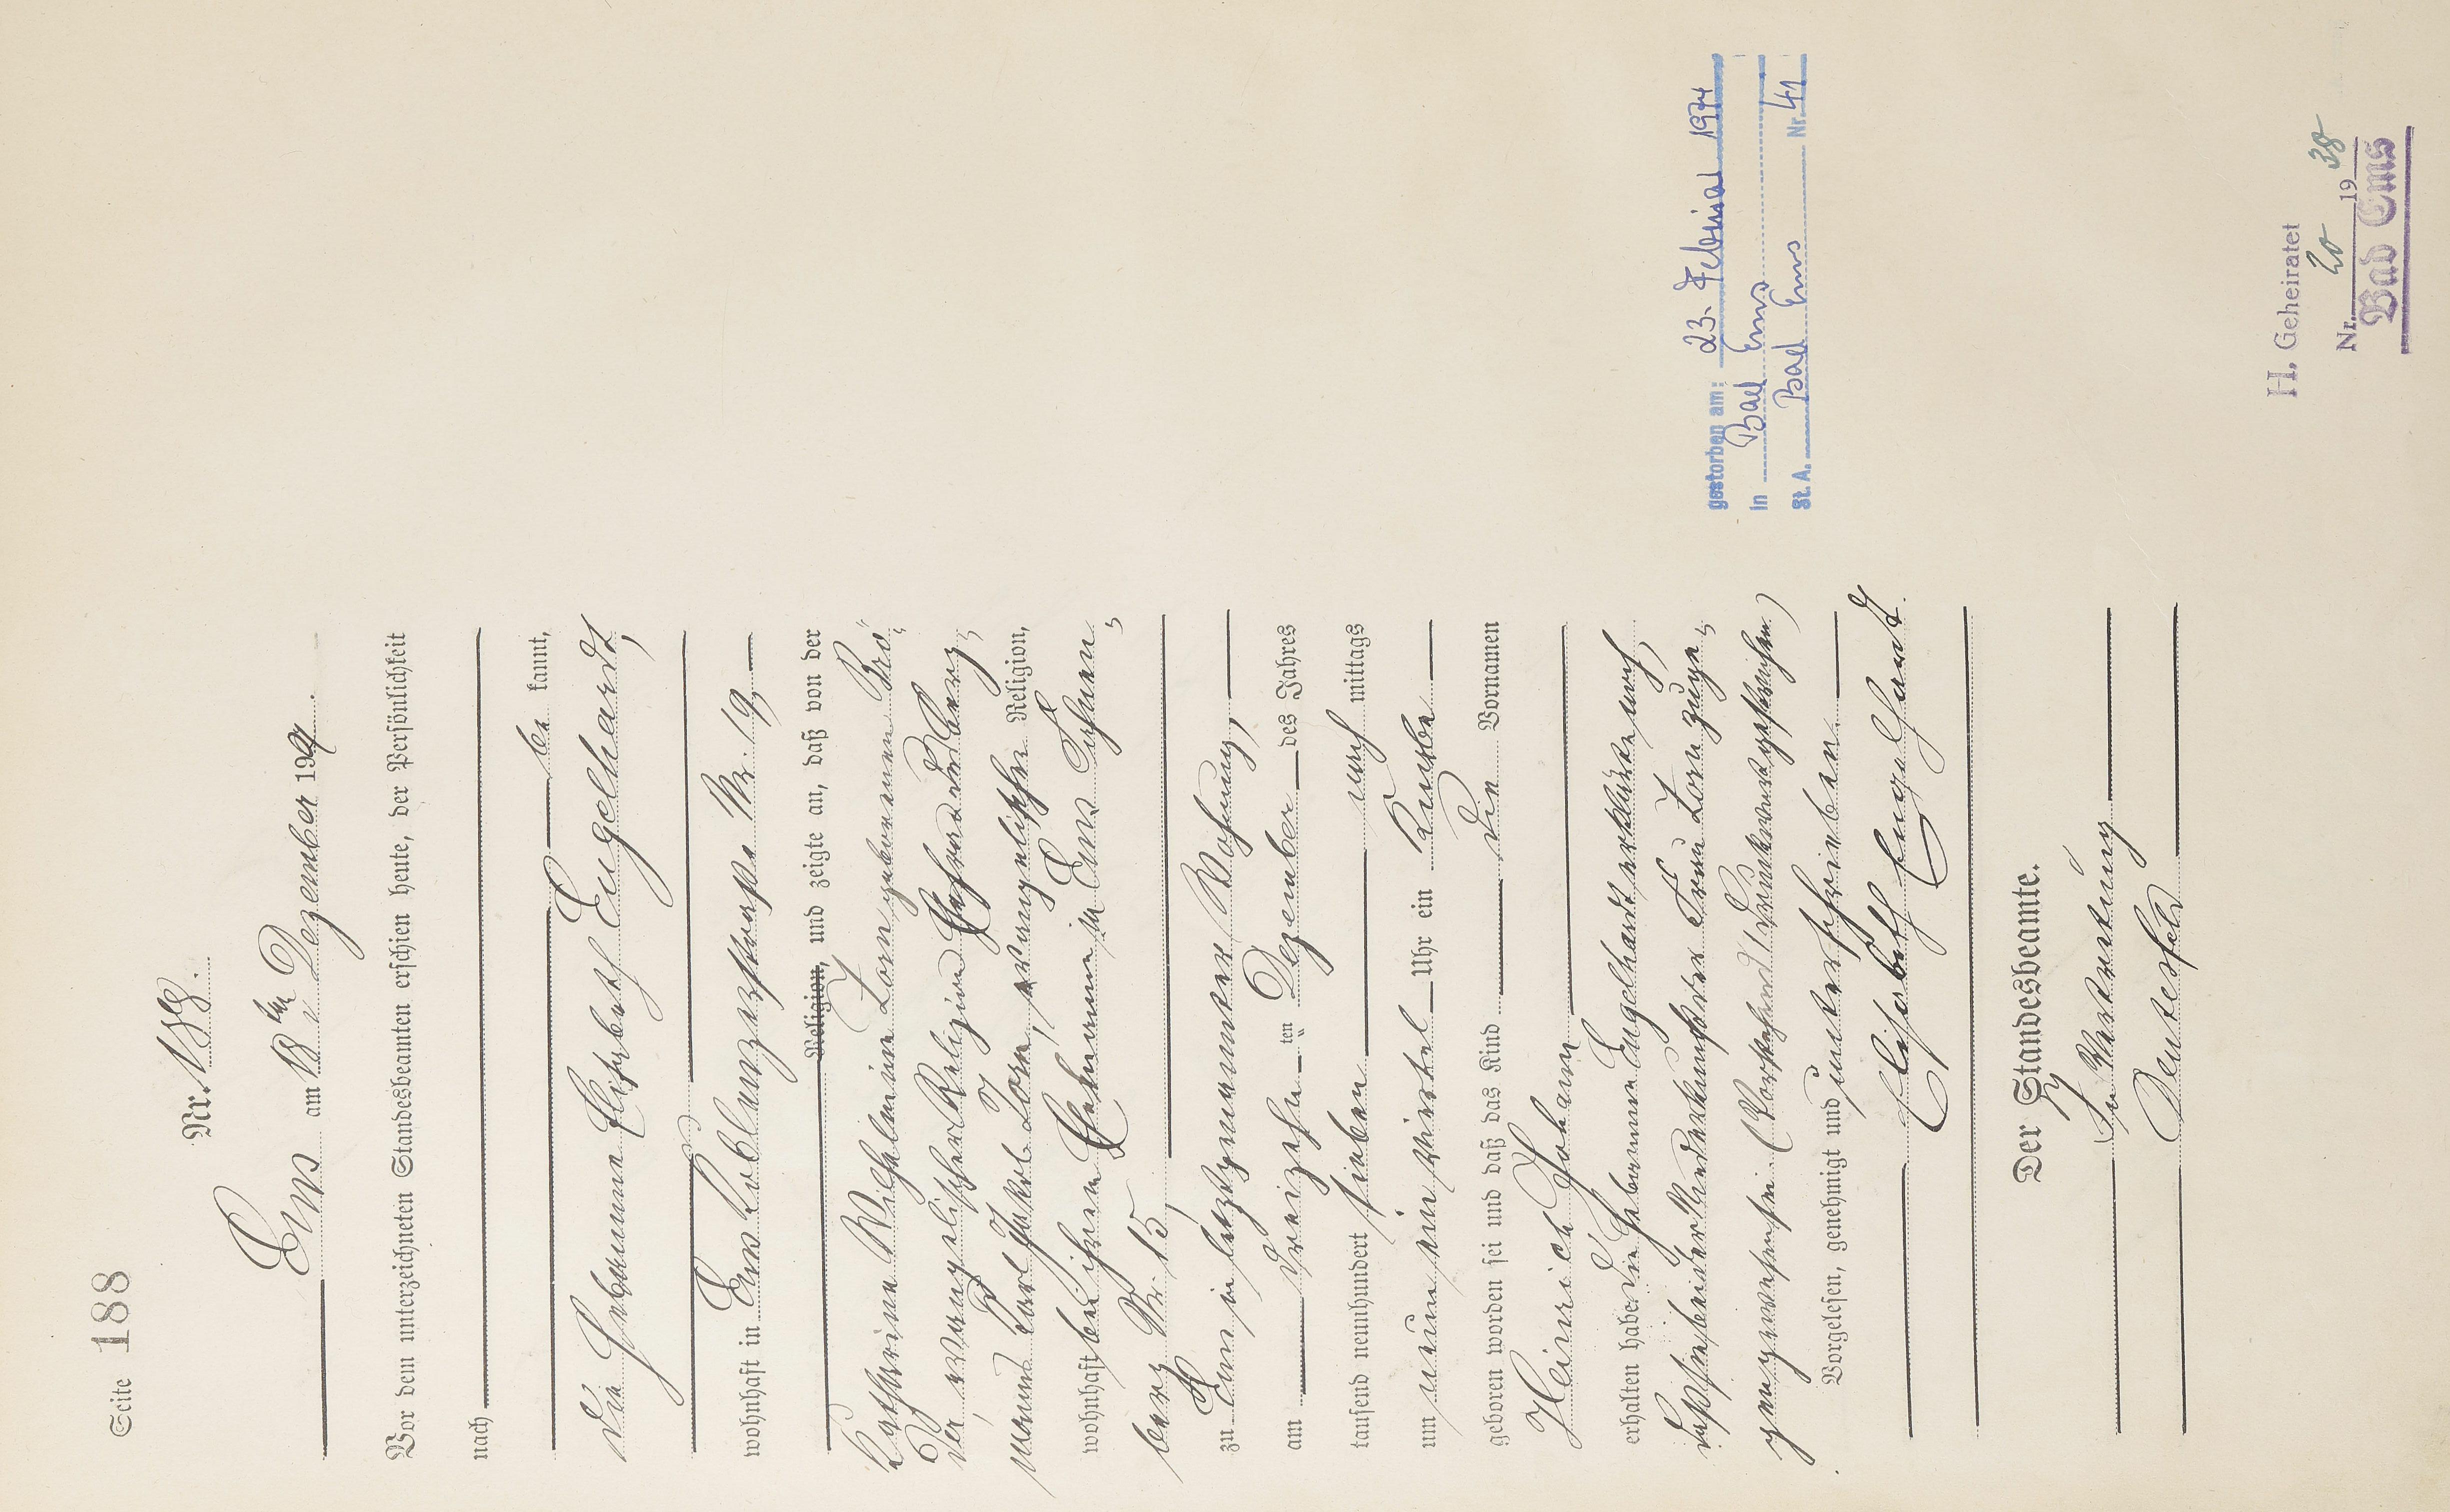 Seite 188
Nr. 188.
Ems am 18ten Dezember 1907.
Vor dem unterzeichneten Standesbeamten erschien heute, der Persönlichkeit
nach
be kannt,
die Hebamme Elisabeth Engelhardt,
wohnhaft in Ems Coblenzerstraße Nr. 19,
Religion, und zeigte an, daß von der
Katharina Wilhelmine Zorn geborenen Brö-
der, evangelischer Religion Ehefrau des
mann Carl Jakob Zorn, evangelischer Religion,
wohnhaft bei ihrem Ehemann in Ems
berg Nr. 15,
zu Ems in letztgenannter Wohnung,
am dreizehn ten Dezember des Jahres
tausend neunhundert sieben nach mittags
um neun ein viertel Uhr ein Knabe
geboren worden sei und daß das Kind die Vornamen
Heinrich Johann
erhalten habe. Die Hebamme Engelhardt erklärte noch,
daß sie bei der Niederkunft der Frau Zorn zuge-
gen gewesen sei. (Vorstehend 1 Druckwort gestrichen.)
Vorgelesen, genehmigt und unterschrieben.
Elisabeth Engelhardt.
Der Standesbeamte.
In Vertretung
gestorben am: 23. Februar 1974
in Bad Ems
St. A. Bad Ems Nr. 41
H. Geheiratet
Nr. 20 1938
Bad Ems